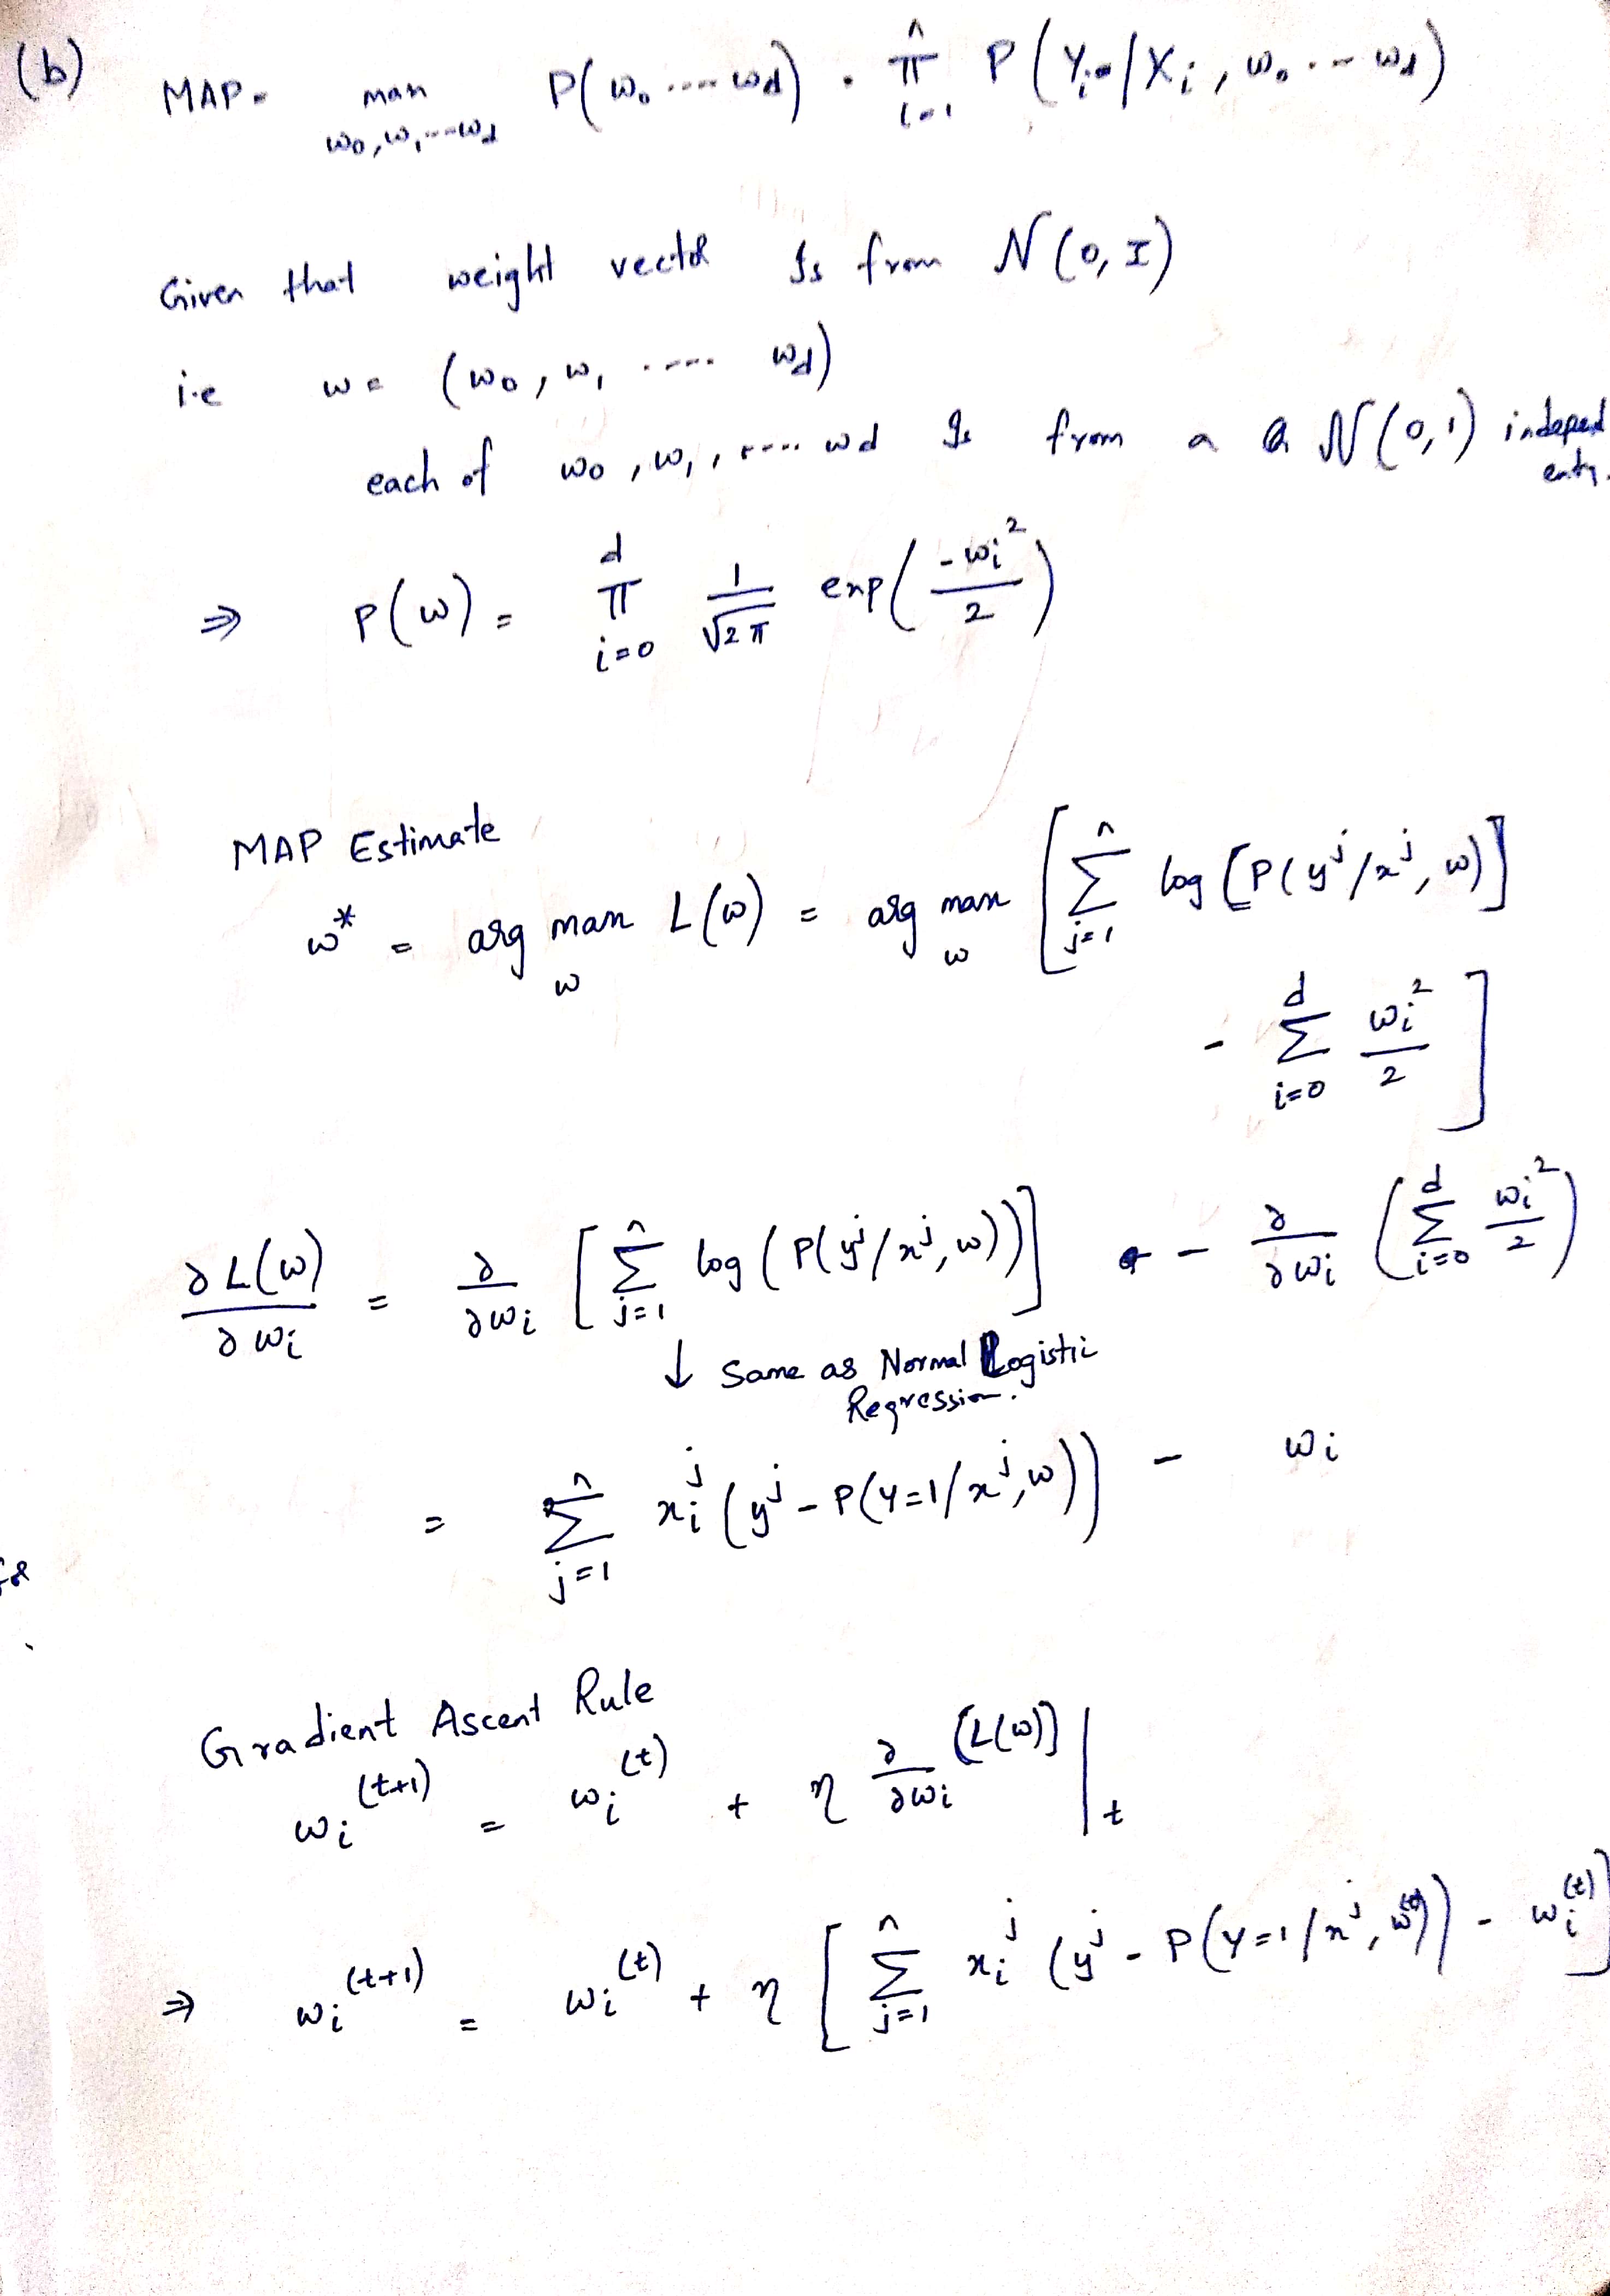 (b) MAP = max P(w₀ .... w_d) . π P(Y_i | X_i, w₀ ... w_d)
w₀, w₁, ... w_d i=1 n
Given that weight vector is from N(0, I)
i.e w = (w₀, w₁ ..... w_d)
each of w₀, w₁, .... w_d is from a N(0,1) independ
ently.
⇒ P(w) = π_{i=0}^{d} 1/√2π exp(-w_i²/2)
MAP Estimate
w* = arg max_w L(w) = arg max_w [ Σ_{j=1}^{n} log [P(y^j/x^j, w)]
- Σ_{i=0}^{d} w_i²/2 ]
∂L(w)/∂w_i = ∂/∂w_i [ Σ_{j=1}^{n} log (P(y^j/x^j, w)) ] - ∂/∂w_i ( Σ_{i=0}^{d} w_i²/2 )
↓ Same as Normal Logistic
Regression.
= Σ_{j=1}^{n} x_i^j (y^j - P(Y=1/x^j, w)) - w_i
Gradient Ascent Rule
w_i^(t+1) = w_i^(t) + η ∂/∂w_i [L(w)] |_t
⇒ w_i^(t+1) = w_i^(t) + η [ Σ_{j=1}^{n} x_i^j (y^j - P(Y=1/x^j, w^(t))) - w_i^(t) ]